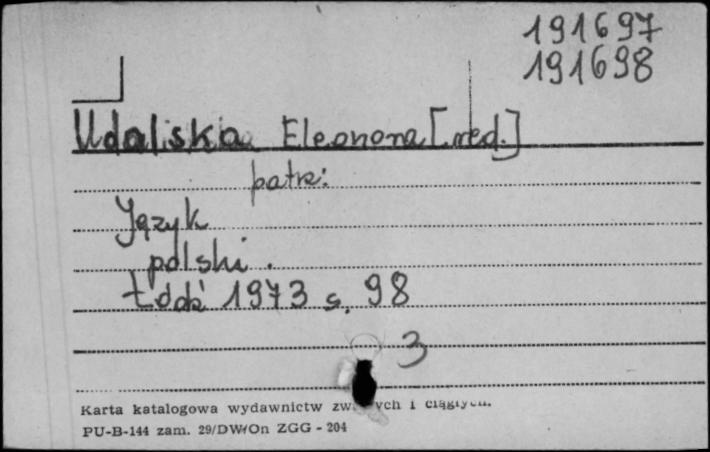 191697
191698
Udaliska Eleonora [red.]
patrz:
Język
polski.
Łódź 1973 s. 98
3
Karta katalogowa wydawnictw ych i ciągłych.
PU-B-144 zam. 29/DWiOn ZGG - 204